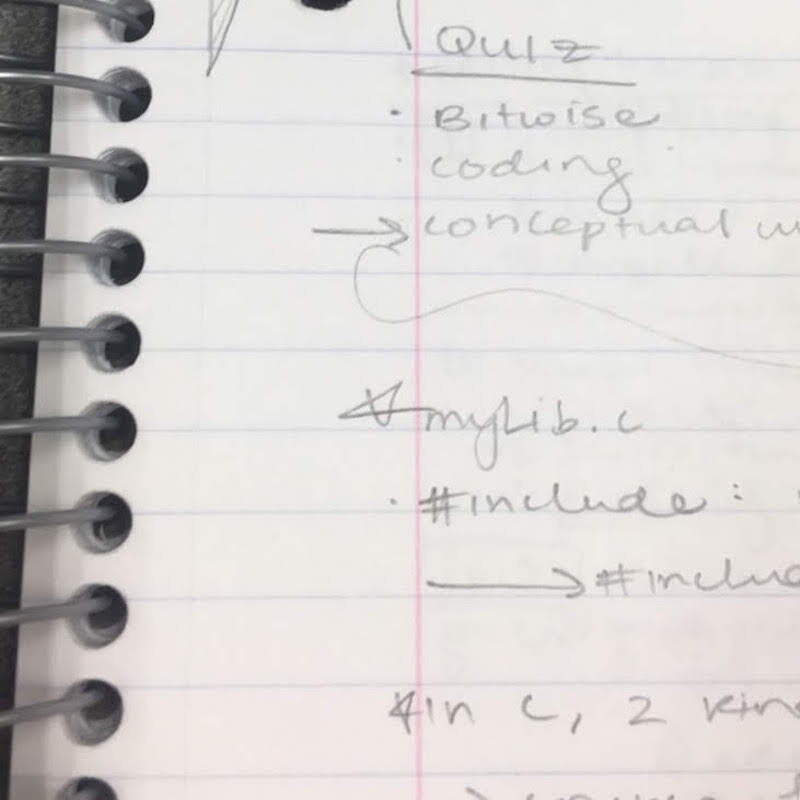 Quiz
· Bitwise
· coding
→ conceptual
myLib.c
· #include :
→ #includ
In C, 2 kin